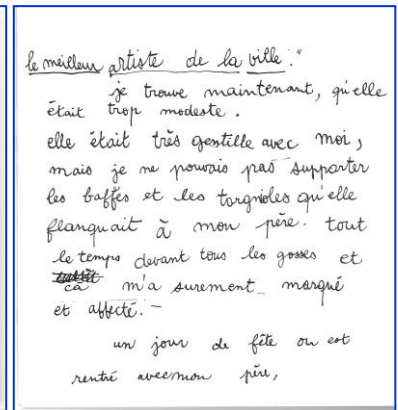 le meilleur artiste de la ville."
je trouve maintenant, qu'elle
était trop modeste.
elle était très gentille avec moi,
mais je ne pouvais pas supporter
les baffes et les torgnioles qu'elle
flanquait à mon père. tout
le temps devant tous les gosses et
ça m'a surement marqué
et affecté. —
un jour de fête on est
rentré avec mon père,